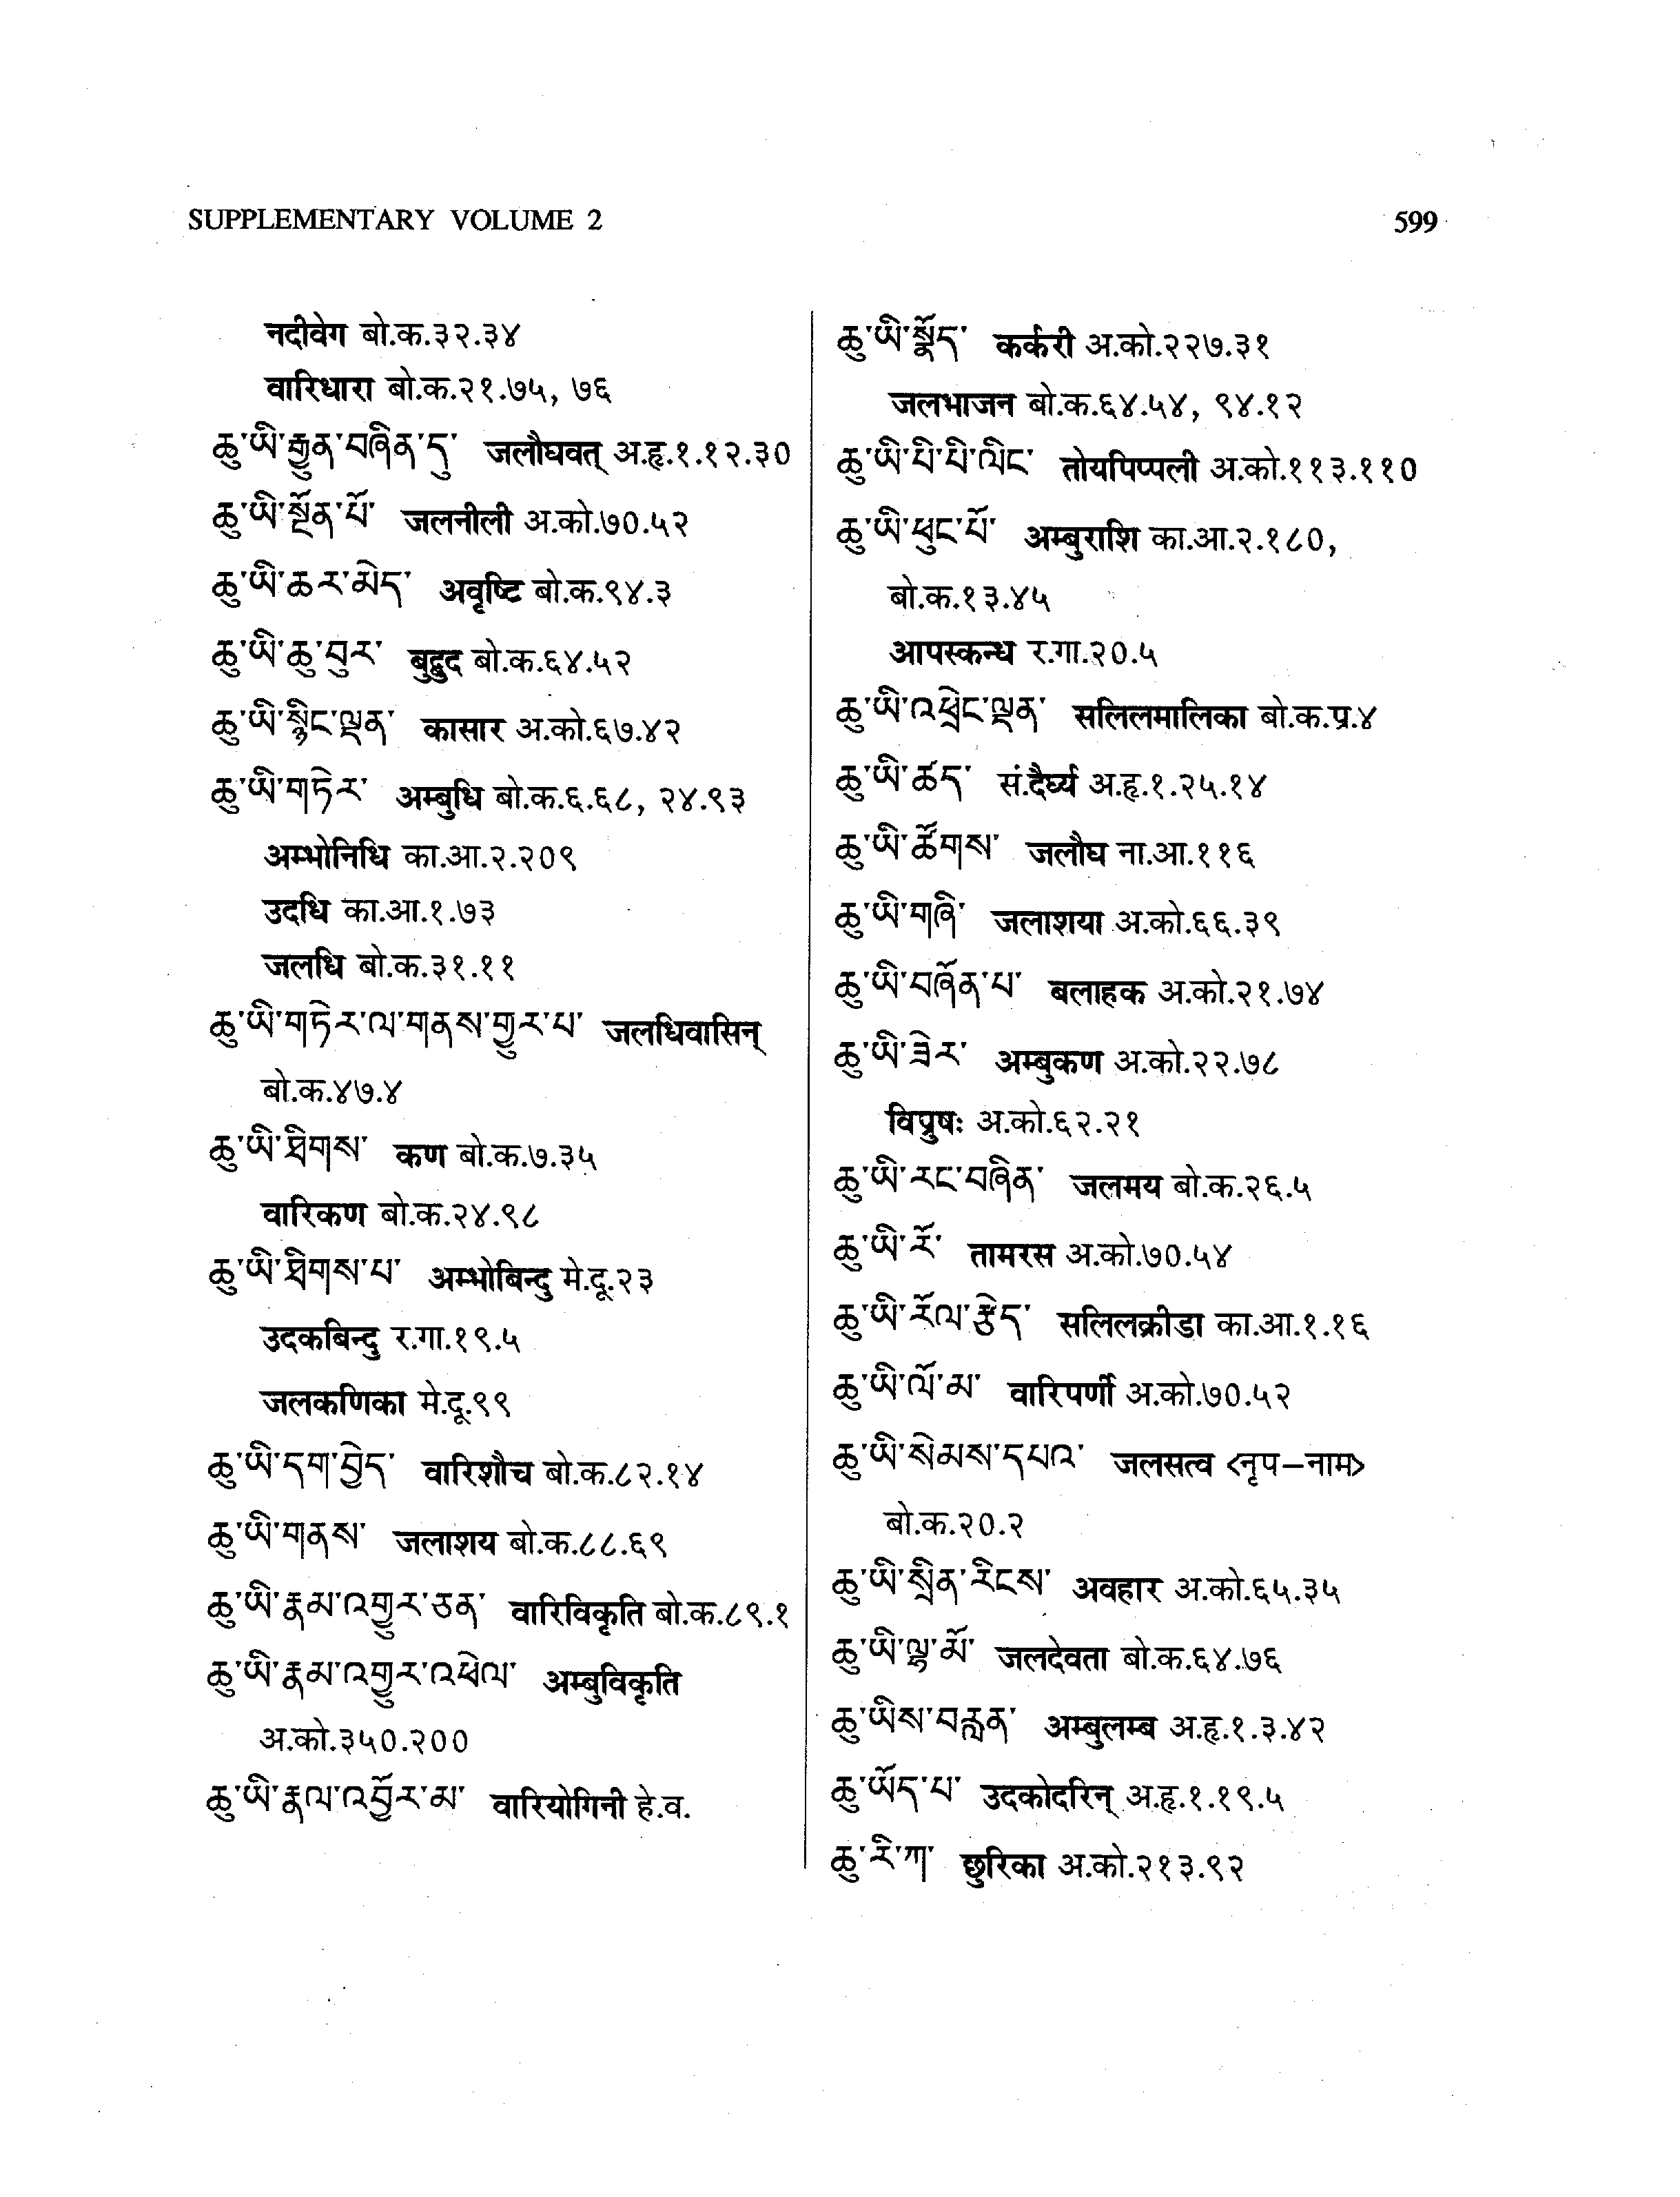 SUPPLEMENTARY VOLUME 2
599
नदीवेग बो.क.३२.३४
वारिधारा बो.क.२१.७५, ७६
ཆུ་ཡི་རྒྱུན་བཞིན་དུ་ जलौघवत् अ.हृ.१.१२.३०
ཆུ་ཡི་སྔོན་པོ་ जलनीली अ.को.७०.५२
ཆུ་ཡི་ཆར་མེད་ अवृष्टि बो.क.९४.३
ཆུ་ཡི་ཆུ་བུར་ बुद्बुद बो.क.६४.५२
ཆུ་ཡི་སྙིང་ལྡན་ कासार अ.को.६७.४२
ཆུ་ཡི་གཏེར་ अम्बुधि बो.क.६.६८, २४.९३
अम्भोनिधि का.आ.२.२०९
उदधि का.आ.१.७३
जलधि बो.क.३१.११
ཆུ་ཡི་གཏེར་ལ་གནས་གྱུར་པ་ जलधिवासिन्
बो.क.४७.४
ཆུ་ཡི་ཐིགས་ कण बो.क.७.३५
वारिकण बो.क.२४.९८
ཆུ་ཡི་ཐིགས་པ་ अम्भोबिन्दु मे.दू.२३
उदकबिन्दु र.गा.१९.५
जलकणिका मे.दू.९९
ཆུ་ཡི་དག་བྱེད་ वारिशौच बो.क.८२.१४
ཆུ་ཡི་གནས་ जलाशय बो.क.८८.६९
ཆུ་ཡི་རྣམ་འགྱུར་ཅན་ वारिविकृति बो.क.८९.१
ཆུ་ཡི་རྣམ་འགྱུར་འཕེལ་ अम्बुविकृति
अ.को.३५०.२००
ཆུ་ཡི་རྣལ་འབྱོར་མ་ वारियोगिनी हे.व.
ཆུ་ཡི་སྣོད་ कर्करी अ.को.२२७.३१
जलभाजन बो.क.६४.५४, ९४.१२
ཆུ་ཡི་པི་པི་ལིང་ तोयपिप्पली अ.को.११३.११०
ཆུ་ཡི་ཕུང་པོ་ अम्बुराशि का.आ.२.१८०,
बो.क.१३.४५
आपस्कन्ध र.गा.२०.५
ཆུ་ཡི་འཕྲེང་ལྡན་ सलिलमालिका बो.क.प्र.४
ཆུ་ཡི་ཚད་ सं.दैर्घ्य अ.हृ.१.२५.१४
ཆུ་ཡི་ཚོགས་ जलौघ ना.आ.११६
ཆུ་ཡི་གཞི་ जलाशया अ.को.६६.३९
ཆུ་ཡི་བཞོན་པ་ बलाहक अ.को.२१.७४
ཆུ་ཡི་ཟེར་ अम्बुकण अ.को.२२.७८
विप्रुषः अ.को.६२.२१
ཆུ་ཡི་རང་བཞིན་ जलमय बो.क.२६.५
ཆུ་ཡི་རོ་ तामरस अ.को.७०.५४
ཆུ་ཡི་རོལ་རྩེད་ सलिलक्रीडा का.आ.१.१६
ཆུ་ཡི་ལོ་མ་ वारिपर्णी अ.को.७०.५२
ཆུ་ཡི་སེམས་དཔའ་ जलसत्व <नृप–नाम>
बो.क.२०.२
ཆུ་ཡི་སྲིན་རིངས་ अवहार अ.को.६५.३५
ཆུ་ཡི་ལྷ་མོ་ जलदेवता बो.क.६४.७६
ཆུ་ཡིས་བརླན་ अम्बुलम्ब अ.हृ.१.३.४२
ཆུ་ཡོད་པ་ उदकोदरिन् अ.हृ.१.१९.५
ཆུ་རི་ཀ་ छुरिका अ.को.२१३.९२